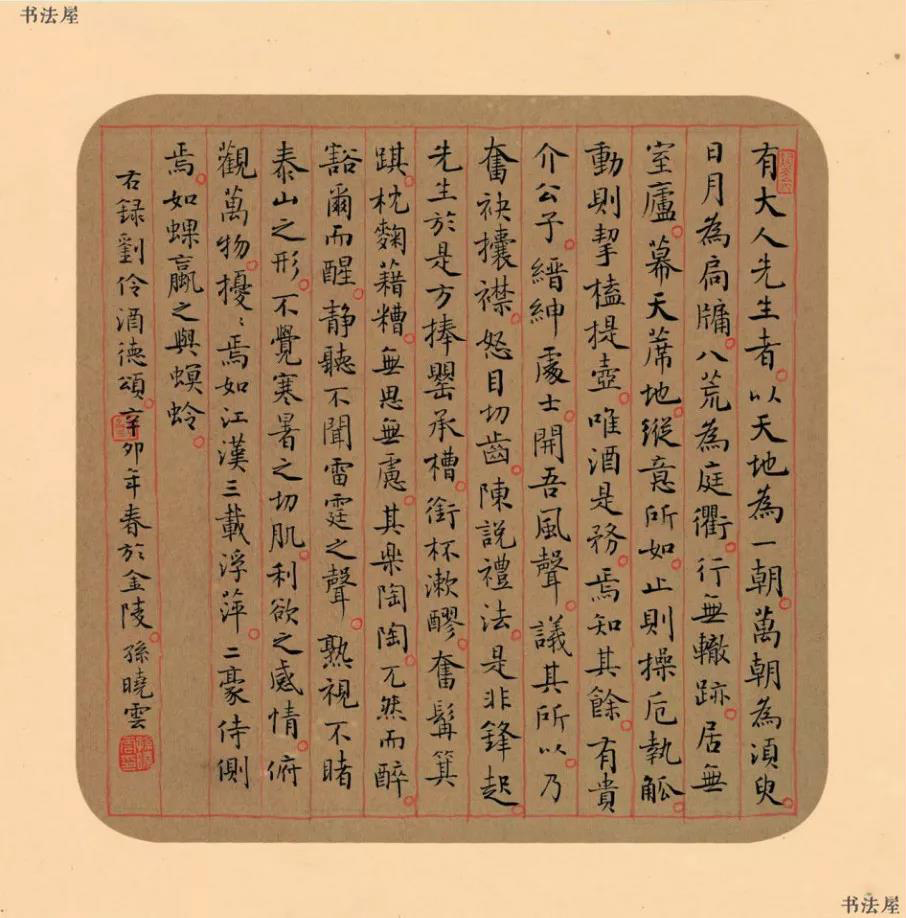 书法屋
有大人先生者。以天地為一朝。萬朝為湏臾。
日月為扃牖。八荒為庭衢。行無轍跡。居無
室廬。幕天蓆地。縱意所如。止則操卮執觚。
動則挈榼提壺。唯酒是務。焉知其餘。有貴
介公子。縉紳處士。開吾風聲。議其所以。乃
奮袂攘襟。怒目切齒。陳說禮法。是非鋒起。
先生於是方捧罌承槽。銜杯漱醪。奮髯箕
踑。枕麴藉糟。無思無慮。其樂陶陶。兀然而醉。
豁爾而醒。静聽不聞雷霆之聲。熟視不睹
泰山之形。不覺寒暑之切肌。利欲之感情。俯
觀萬物。擾〻焉如江漢三載浮萍。二豪侍側
焉。如蜾蠃之與螟蛉。
右録劉伶酒德頌。辛卯年春於金陵。孫曉雲
书法屋